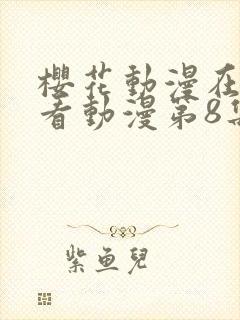 櫻花動漫在
看動漫第8集
紫魚兒